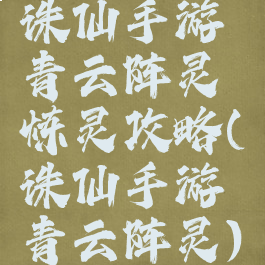 诛仙手游
青云阵灵
炼灵攻略(
诛仙手游
青云阵灵)